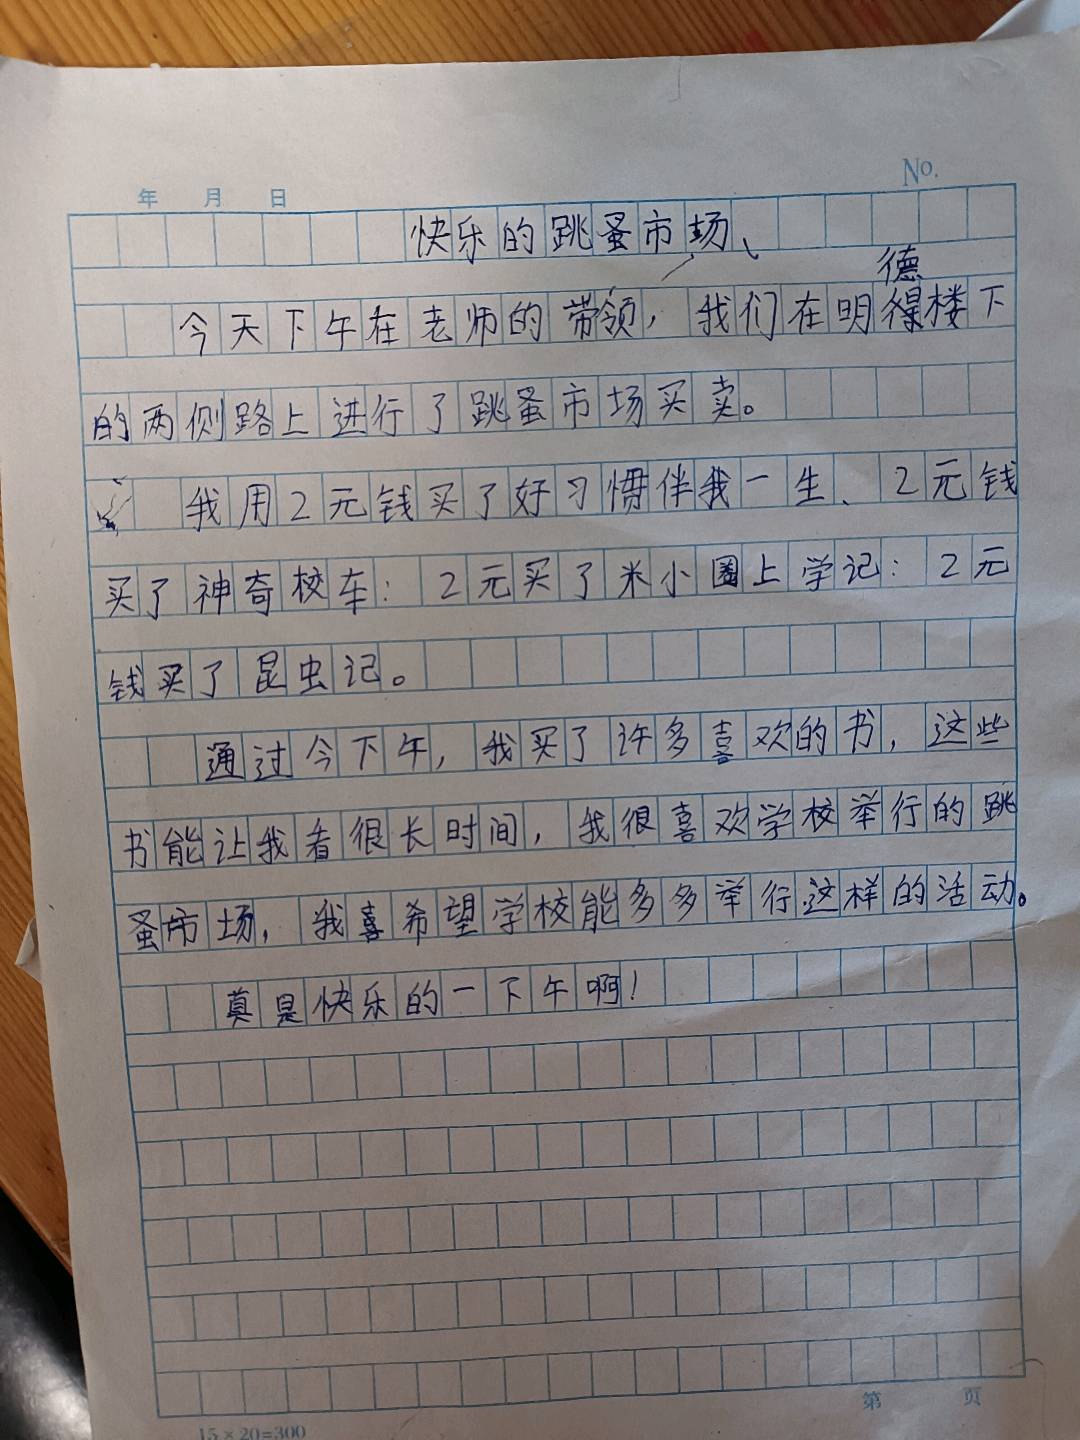 No.
年 月 日
快乐的跳蚤市场、
德
今天下午在老师的带领，我们在明得楼下
的两侧路上进行了跳蚤市场买卖。
我用2元钱买了好习惯伴我一生、2元钱
买了神奇校车：2元买了米小圈上学记：2元
钱买了昆虫记。
通过今下午，我买了许多喜欢的书，这些
书能让我看很长时间，我很喜欢学校举行的跳
蚤市场，我喜希望学校能多多举行这样的活动。
真是快乐的一下午啊！
第 页
15×20=300